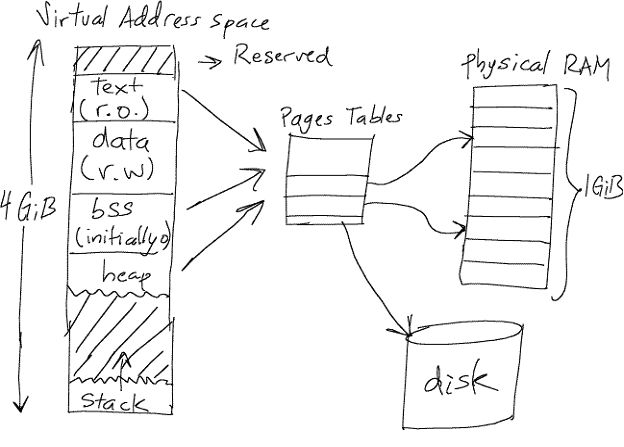 Virtual Address space
Reserved
text
(r.o.)
data
(r.w)
bss
(initially 0)
heap
stack
4 GiB
Pages Tables
physical RAM
1GiB
disk